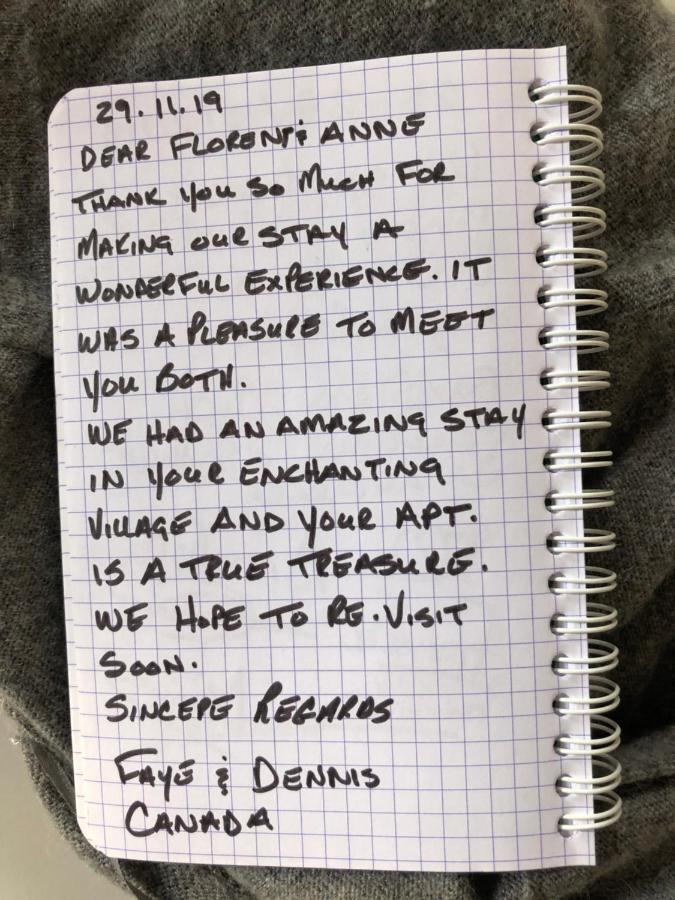 29.11.19
DEAR FLORENT & ANNE
THANK YOU SO MUCH FOR
MAKING OUR STAY A
WONDERFUL EXPERIENCE. IT
WAS A PLEASURE TO MEET
YOU BOTH.
WE HAD AN AMAZING STAY
IN YOUR ENCHANTING
VILLAGE AND YOUR APT.
IS A TRUE TREASURE.
WE HOPE TO RE.VISIT
SOON.
SINCERE REGARDS
FAYE & DENNIS
CANADA